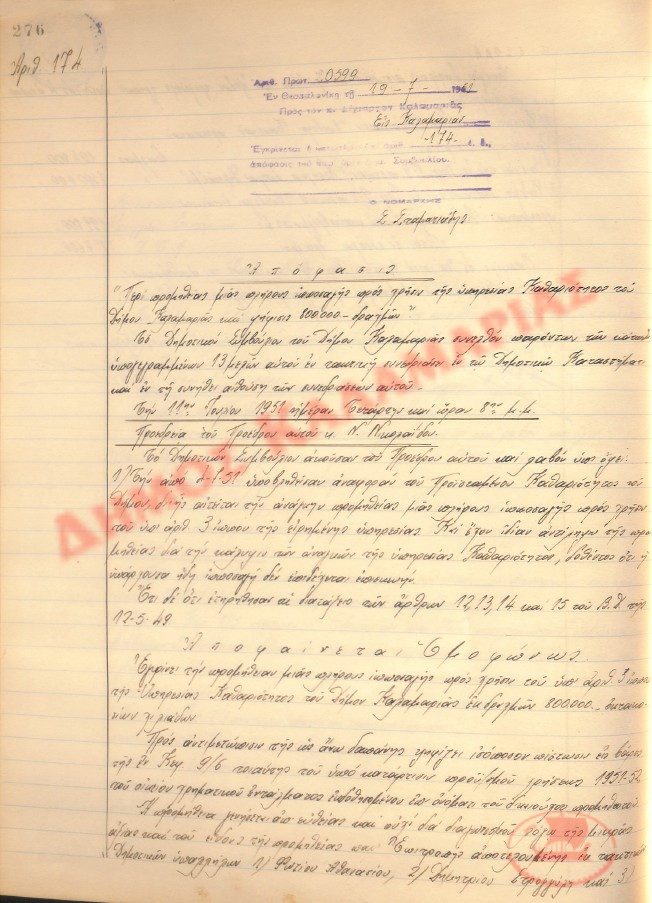 276
Ἀριθ 174
Ἀριθ. Πρωτ. 20599
Ἐν Θεσσαλονίκῃ τῇ 19-7-1951
Πρὸς τὸν κ. Δήμαρχον Καλαμαριᾶς
Εἰς Καλαμαριάν
Ἐγκρίνεται 174
ἀπόφασις τοῦ Συμβουλίου.
Ὁ ΝΟΜΑΡΧΗΣ
Σ. Σταματιάδης
Ἀπόφασις
"Περὶ προμηθείας μιᾶς πλήρους ἱπποσαγῆς πρὸς χρῆσιν τῆς ὑπηρεσίας Καθαριότητος τοῦ
Δήμου Καλαμαριᾶς καὶ ψήφισις 800.000- δραχμῶν".
Τὸ Δημοτικὸν Συμβούλιον τοῦ Δήμου Καλαμαριᾶς συνελθὸν παρόντων τῶν κάτωθι
ὑπογεγραμμένων 13 μελῶν αὐτοῦ ἐν τακτικῇ συνεδριάσει ἐν τῷ Δημοτικῷ Καταστήματι
καὶ ἐν τῇ συνήθει αἰθούσῃ τῶν συνεδριάσεων αὐτοῦ.
Τὴν 11ην Ἰουλίου 1951 ἡμέραν Τετάρτην καὶ ὥραν 8ην μ.μ.
Προεδρείᾳ τοῦ Προέδρου αὐτοῦ κ. Ν. Νικολαΐδου.
Τὸ Δημοτικὸν Συμβούλιον ἀκοῦσαν τοῦ Προέδρου αὐτοῦ καὶ λαβὸν ὑπ' ὄψει:
1) Τὴν ἀπὸ 51 ὑποβληθεῖσαν ἀναφορὰν τοῦ Προϊσταμένου Καθαριότητος τοῦ
Δήμου, δι' ἧς αἰτεῖται τὴν ἀνάγκην προμηθείας μιᾶς πλήρους ἱπποσαγῆς πρὸς χρῆσιν
τοῦ ὑπ' ἀριθ. 3 ἵππου τῆς εἰρημένης ὑπηρεσίας. Καὶ ἔχον ἰδίαν ἀντίληψιν τῆς προ
μηθείας διὰ τὴν κάλυψιν τῶν ἀναγκῶν τῆς ὑπηρεσίας Καθαριότητος, δοθέντος ὅτι ἡ
ὑπάρχουσα ἤδη ἱπποσαγὴ δὲν ἐπιδέχεται ἐπισκευήν.
Ἔτι δὲ ὅτι ἐτηρήθησαν αἱ διατάξεις τῶν ἄρθρων 12, 13, 14 καὶ 15 τοῦ Β.Δ. τῆς
12-5-49
Ἀποφαίνεται Ὁμοφώνως
Ἐγκρίνει τὴν προμήθειαν μιᾶς πλήρους ἱπποσαγῆς πρὸς χρῆσιν τοῦ ὑπ' ἀριθ. 3 ἵππου
τῆς Ὑπηρεσίας Καθαριότητος τοῦ Δήμου Καλαμαριᾶς ἐκ δραχμῶν 800.000- ὀκτακο
σίων χιλιάδων.
Πρὸς ἀντιμετώπισιν τῆς ὡς ἄνω δαπάνης ψηφίζει ἰσόποσον πίστωσιν εἰς βάρος
τῆς ἐν Κεφ. 9/6 τοιαύτης τοῦ ὑπὸ κατάρτισιν προϋ/σμοῦ χρήσεως 1951-52,
τοῦ οἰκείου χρηματικοῦ ἐντάλματος ἐκδοθησομένου ἐπ' ὀνόματι τοῦ δικαιούχου προμηθευτοῦ.
Ἡ προμήθεια γενήσεται ἀπ' εὐθείας καὶ οὐχὶ διὰ διαγωνισμοῦ λόγῳ τῆς μικρᾶς
ἀξίας καὶ τοῦ εἴδους τῆς προμηθείας ὑπὸ Ἐπιτροπῆς ἀποτελουμένης ἐκ τακτικῶν
Δημοτικῶν ὑπαλλήλων 1) Φωτίου Ἀθανασίου, 2) Δημητρίου Στρογγύλη καὶ 3)
ΔΗΜΟΣ ΚΑΛΑΜΑΡΙΑΣ